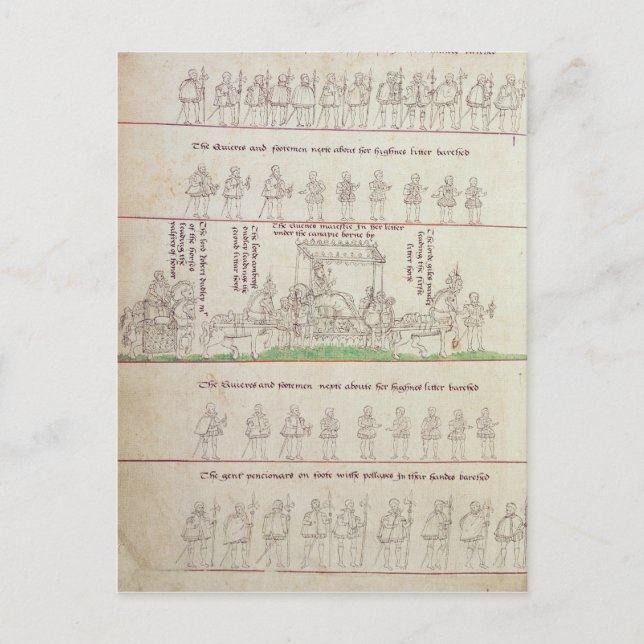 barehed
The Quieres and footemen nexte about her highnes litter barehed
The lord Robert Dudley mr
of the horses
leading the
palfrey of honor
The lord ambrose
dudley leading the
second litter horse
The Quenes maiestie In her litter
under the canapie borne by
The lorde giles paulet
leading the firste
litter horse
The Quieres and footemen nexte aboute her highnes litter barehed
The gent pencionars on foote withe pollaxes In their handes barehed